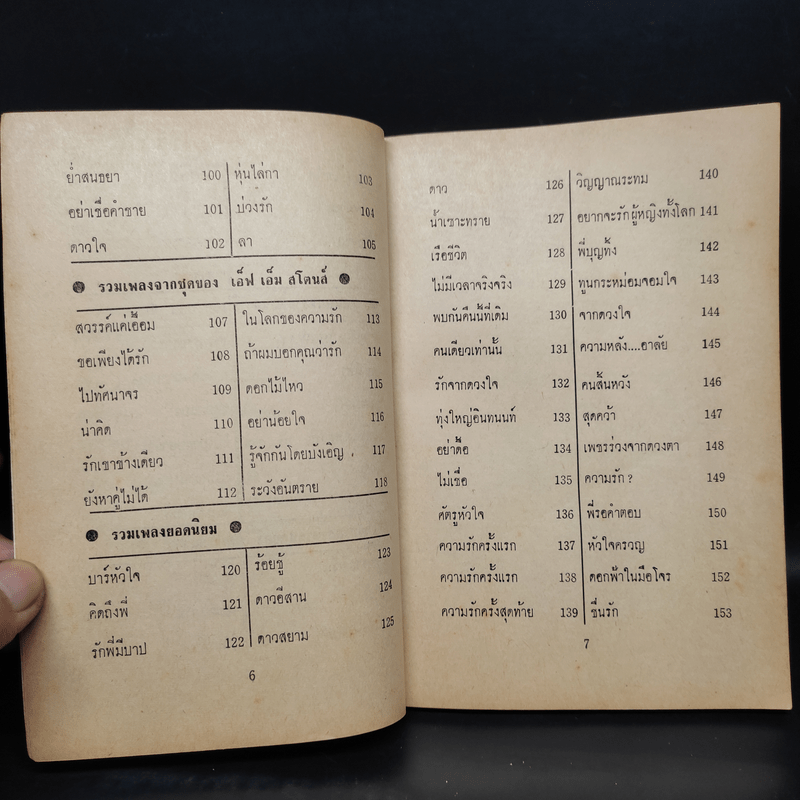 ย่ำสนธยา 100 หุ่นไล่กา 103
อย่าเชื่อคำชาย 101 บ่วงรัก 104
ดาวใจ 102 ลา 105
รวมเพลงจากชุดของ เอ็ฟ เอ็ม สโตนส์
สวรรค์แค่เอื้อม 107 ในโลกของความรัก 113
ขอเพียงได้รัก 108 ถ้าผมบอกคุณว่ารัก 114
ไปทัศนาจร 109 ดอกไม้ไหว 115
น่าคิด 110 อย่าน้อยใจ 116
รักเขาข้างเดียว 111 รู้จักกันโดยบังเอิญ 117
ยังหาคู่ไม่ได้ 112 ระวังอันตราย 118
รวมเพลงยอดนิยม
บาร์หัวใจ 120 ร้อยชู้ 123
คิดถึงพี่ 121 ดาวอีสาน 124
รักพี่มีบาป 122 ดาวสยาม 125
6
ดาว 126 วิญญาณระทม 140
น้ำเซาะทราย 127 อยากจะรักผู้หญิงทั้งโลก 141
เรือชีวิต 128 พี่บุญทิ้ง 142
ไม่มีเวลาจริงจริง 129 ทูนกระหม่อมจอมใจ 143
พบกันคืนนี้ที่เดิม 130 จากดวงใจ 144
คนเดียวเท่านั้น 131 ความหลัง....อาลัย 145
รักจากดวงใจ 132 คนสิ้นหวัง 146
ทุ่งใหญ่อินทนนท์ 133 สุดคว้า 147
อย่าดื้อ 134 เพชรร่วงจากดวงตา 148
ไม่เชื่อ 135 ความรัก ? 149
ศัตรูหัวใจ 136 พี่รอคำตอบ 150
ความรักครั้งแรก 137 หัวใจครวญ 151
ความรักครั้งแรก 138 ดอกฟ้าในมือโจร 152
ความรักครั้งสุดท้าย 139 ชื่นรัก 153
7